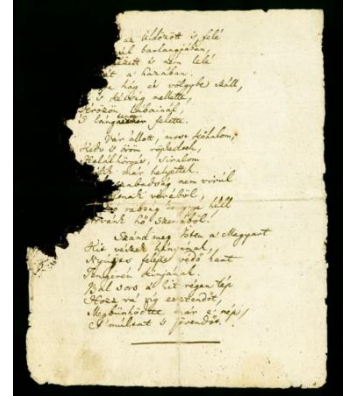 az üldözött s felé
nyúl barlangjában,
nézett s nem lelé
át a hazában.
hág és völgybe száll,
s kétség mellette,
Vérözön lábainál,
S lángtenger felette.
Vár állott, most kőhalom;
Kedv s öröm röpkedtek,
Halálhörgés, siralom
már helyettek.
szabadság nem virúl
véréből,
rabság könnye hull
hő szeméből!
Szánd meg Isten a Magyart
Kit vészek hányának,
Nyújts feléje védő kart
Tengerén kínjának.
Bal sors a kit régen tép,
Hozz rá víg esztendőt,
Megbűnhödte már e nép
A multat s jövendőt.